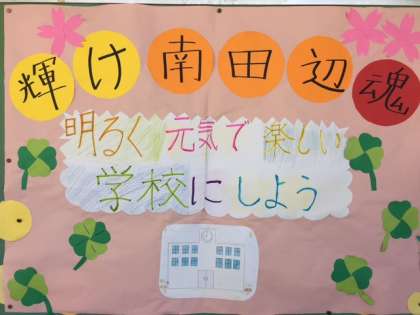 輝け南田辺魂
明るく元気で楽しい
学校にしよう